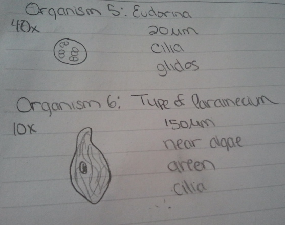 Organism 5: Eudorina
40x
20um
cilia
glides
Organism 6: Type of Paramecium
10x
150um
near algae
green
cilia